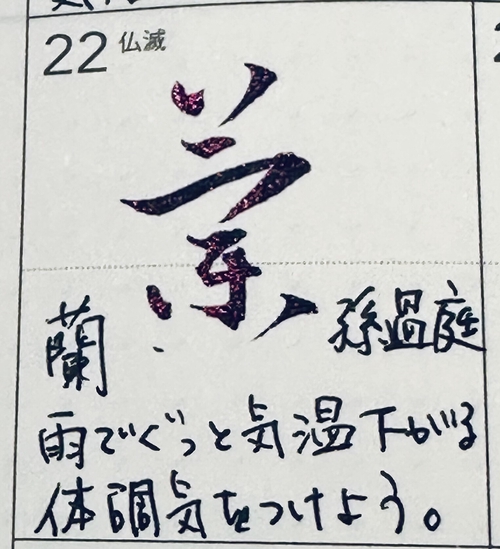 22 仏滅
蘭
蘭 孫過庭
雨でぐっと気温下がる
体調気をつけよう。